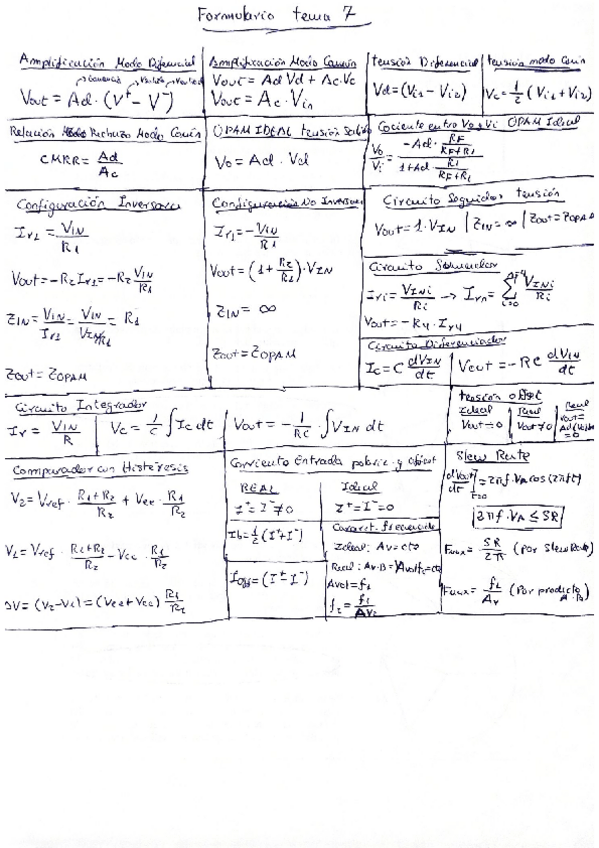 Formulario tema 7
Amplificación Modo Diferencial
Ganancia
Vout = Ad · (V⁺ - V⁻)
Amplificación Modo Común
Vout = Ad Vd + Ac · Vc
Vout = Ac · Vin
tensión Diferencial
Vd = (Vi1 - Vi2)
tensión modo Común
Vc = 1/2 (Vi1 + Vi2)
Relación Rechazo Modo Común
CMRR = Ad/Ac
OPAM IDEAL tensión Salida
Vo = Ad · Vd
Cociente entre Vo y Vi OPAM Ideal
Vo/Vi = (-Ad · RF/(RF+R1)) / (1 + Ad · R1/(RF+R1))
Configuración Inversora
Ir1 = VIN/R1
Vout = -R2 Ir1 = -R2 VIN/R1
ZIN = VIN/Ir1 = VIN/(VIN/R1) = R1
Zout = ZOPAM
Configuración No Inversora
Ir1 = - VIN/R1
Vout = (1 + R2/R1) · VIN
ZIN = ∞
Zout = ZOPAM
Circuito Seguidor tensión
Vout = 1 · VIN | ZIN = ∞ | Zout = ZOPAM
Circuito Sumador
Iri = VINi/Ri → Irn = Σ VINi/Ri
i=0
Vout = -R4 · Ir4
Circuito Diferenciador
Ic = C dVIN/dt
Vout = -RC dVIN/dt
Circuito Integrador
Ir = VIN/R
Vc = 1/C ∫ Ic dt
Vout = - 1/RC · ∫ VIN dt
tensión offset
Ideal
Vout = 0
Real
Vout ≠ 0
Real
Vout =
= 0
Comparador con Histéresis
V2 = Vref · (R1+R2)/R2 + Vcc · R1/R2
V1 = Vref · (R1+R2)/R2 - Vcc · R1/R2
ΔV = (V2 - V1) = (Vcc + Vcc) R1/R2
Corriente Entrada polariz. y offset
REAL
I⁺ = I⁻ ≠ 0
Ideal
I⁺ = I⁻ = 0
Ib = 1/2 (I⁺ + I⁻)
Ioff = (I⁺ - I⁻)
Caract. frecuencia
Ideal: Av = cte
Real: Av · B =
Slew Rate
dVout/dt]t=0 = 2πf · VA cos(2πft)
2πf · VA ≤ SR
Fmax = SR/2π (por Slew Rate)
Fmax = f1/Av (Por producto A · B)